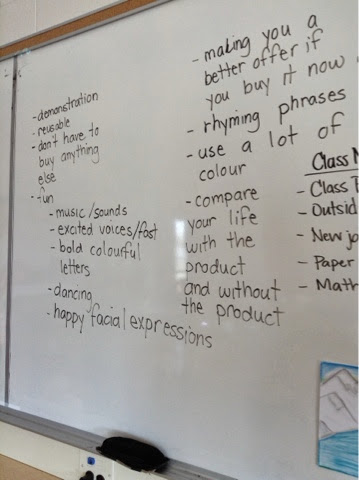 -demonstration
-reusable
-don't have to
buy anything
else
-fun
-music/sounds
-excited voices/fast
-bold colourful
letters
-dancing
-happy facial expressions
-making you a
better offer if
you buy it now
-rhyming phrases
-use a lot of
colour
-compare
your life
with the
product
and without
the product
Class
-Class
-Outsid
-New jo
-Paper
-Math